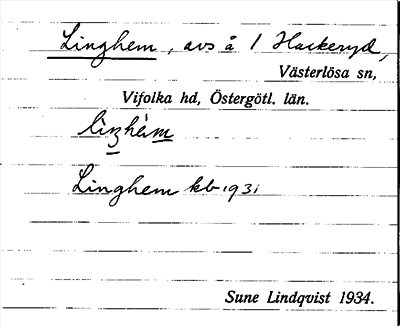 Linghem, avs å 1 Hackeryd,
Västerlösa sn,
Vifolka hd, Östergötl. län.
liŋhèm
Linghem kb 1931
Sune Lindqvist 1934.